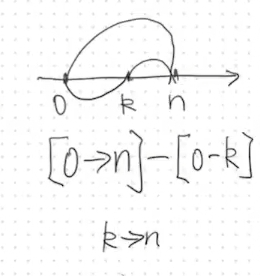 0 k n
[0→n]-[0-k]
k→n